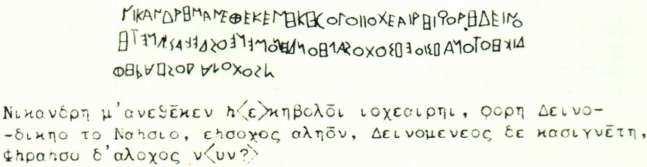 ΝΙΚΑΝΔΡΗΜΑΝΕΘΕΚΕΝΗΚΗΒΟΛΟΙΙΟΧΕΑΙΡΗΙϘΟΡΗΔΕΙΝΟ
ΔΙΚΗΟΤΟΝΑΗΣΙΟΕΗΣΟΧΟΣΑΛΗΟΝΔΕΙΝΟΜΕΝΕΟΣΔΕΚΑΣΙΓΝΕΤΗ
ΦΗΡΑΗΣΟΔΑΛΟΧΟΣΝ
Νικανδρη μ'ανεθε̄κεν h<ε>κηβολο̄ι ιοχεαιρηι, ϙορη Δεινο-
-δικηο το Ναησιο, εησοχος αληο̄ν, Δεινομενεος δε κασιγνε̄τη,
Φηραησο δ'αλοχος ν<υν?>